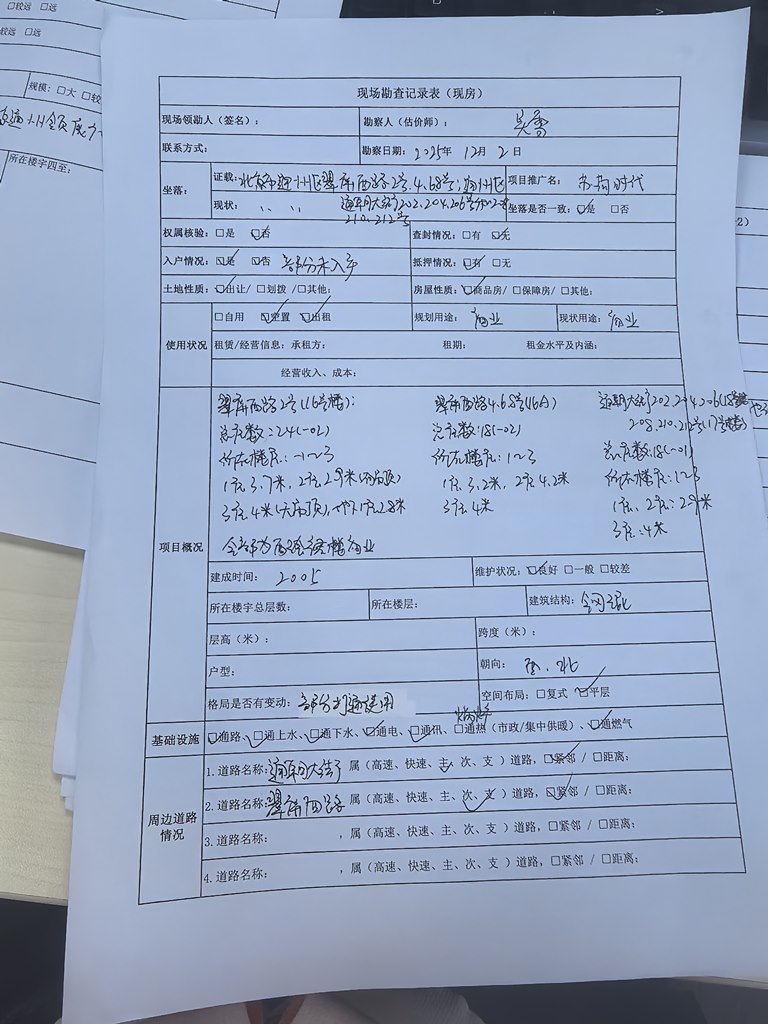 □较远 □远
较远 □远
规模：□大 □较
所在楼宇四至：
现场勘查记录表（现房）
现场领勘人（签名）： 勘察人（估价师）：
联系方式： 勘察日期：2025年 12月 2日
坐落： 证载：北京市通州区翠屏西路2号.4.6.8号；通州区 项目推广名：
现状： 〃 〃 通朝大街202.204.206号 坐落是否一致：☑是 □否
210.212号
权属核验：□是 ☑否 查封情况：□有 ☑无
入户情况：☑是 ☑否 部分未入户 抵押情况：☑有 □无
土地性质：☑出让/ □划拨 /□其他: 房屋性质：☑商品房/ □保障房/ □其他:
使用状况 □自用 ☑空置 ☑出租 规划用途： 商业 现状用途： 商业
租赁/经营信息：承租方： 租期： 租金水平及内涵：
经营收入、成本：
项目概况
翠屏西路2号(16号楼)： 翠屏西路4.6.8号(16A) 通朝大街202.204.206
208.210.212号(17号楼)
总层数：24(-02) 总层数：18(-02) 总层数：18(-01)
所在楼层：-1~3 所在楼层：1~3 所在楼层：1~3
1层3.7米，2层2.9米(有吊顶) 1层3.2米，2层4.2米 1层、2层：2.9米
3层4米(无吊顶)，地下1层2.8米 3层4米 3层：4米
全部为商业
建成时间： 2005 维护状况：☑良好 □一般 □较差
所在楼宇总层数： 所在楼层： 建筑结构：钢混
层高（米）： 跨度（米）：
户型： 朝向： 西、北
格局是否有变动：部分打通使用 空间布局：□复式 ☑平层
基础设施 ☑通路、☑通上水、☑通下水、☑通电、☑通讯、□通热（市政/集中供暖）、☑通燃气
周边道路情况
1.道路名称：通朝大街 属（高速、快速、主、次、支 ）道路，☑紧邻 / □距离:
2.道路名称：翠屏西路 属（高速、快速、主、次、支 ）道路，☑紧邻 / □距离:
3.道路名称： ，属（高速、快速、主、次、支 ）道路，□紧邻 / □距离:
4.道路名称： ，属（高速、快速、主、次、支 ）道路，□紧邻 / □距离: